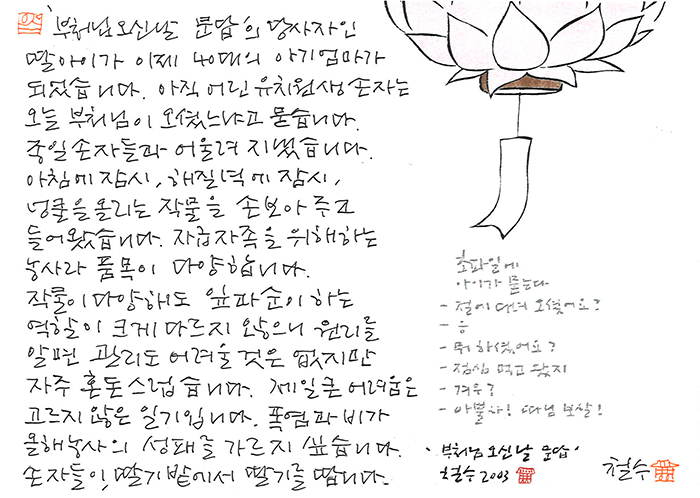 '부처님 오신날 문답'의 당사자인
딸아이가 이제 40대의 아기엄마가
되었습니다. 아직 어린 유치원생 손자는
오늘 부처님이 오셨느냐고 묻습니다.
종일 손자들과 어울려 지냈습니다.
아침에 잠시, 해질녘에 잠시,
넝쿨을 올리는 작물을 손보아 주고
들어왔습니다. 자급자족을 위해하는
농사라 품목이 다양합니다.
작물이 다양해도 잎파순이 하는
역할이 크게 다르지 않으니 원리를
알면 관리도 어려울 것은 없지만
자주 혼돈스럽습니다. 제일 큰 어려움은
고르지 않은 일기입니다. 폭염과 비가
올해농사의 성패를 가르지 싶습니다.
손자들이, 딸기밭에서 딸기를 땁니다.
초파일에
아이가 묻는다
- 절에 다녀 오셨어요?
- 응
- 뭐 하셨어요?
- 점심 먹고 왔지
- 겨우?
- 아뿔차! 따님 보살!
'부처님 오신날 문답'
철수 2003
철수